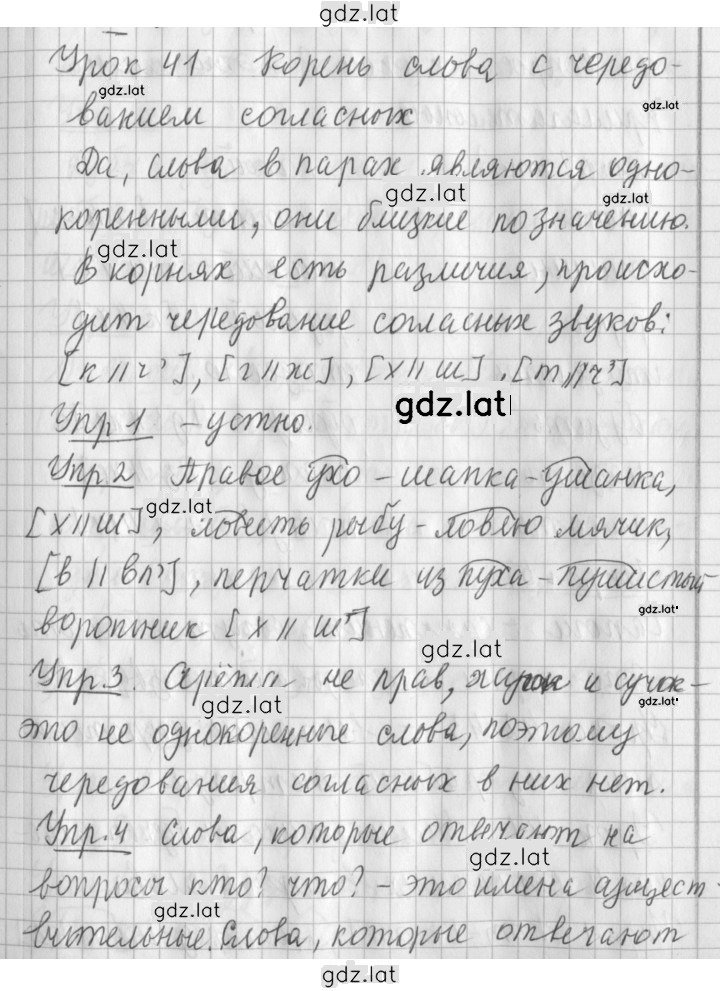 gdz.lat
Урок 41 Корень слова с чередо-
gdz.lat gdz.lat
ванием согласных
Да, слова в парах являются одно-
gdz.lat gdz.lat
коренными, они близкие по значению.
gdz.lat
В корнях есть различия, происхо-
дит чередование согласных звуков:
[к//ч'], [г//ж], [х//ш], [т//ч']
gdz.lat
Упр 1 – устно.
Упр 2 Правое ухо – шапка-ушанка,
gdz.lat
[х//ш], ловить рыбу – ловлю мячик,
[в//вл'], перчатки из пуха – пушистый
gdz.lat
воротник [х//ш]
gdz.lat
Упр.3. Серёжа не прав, жук и сучок –
gdz.lat gdz.lat
это не однокоренные слова, поэтому
чередования согласных в них нет.
Упр.4 Слова, которые отвечают на
gdz.lat
вопросы кто? что? – это имена сущест-
gdz.lat
вительные. Слова, которые отвечают
gdz.lat